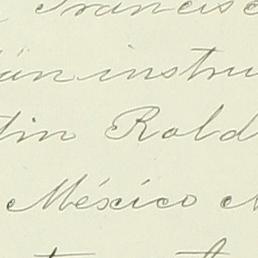 Francisc
ún instru
tin Rold
México